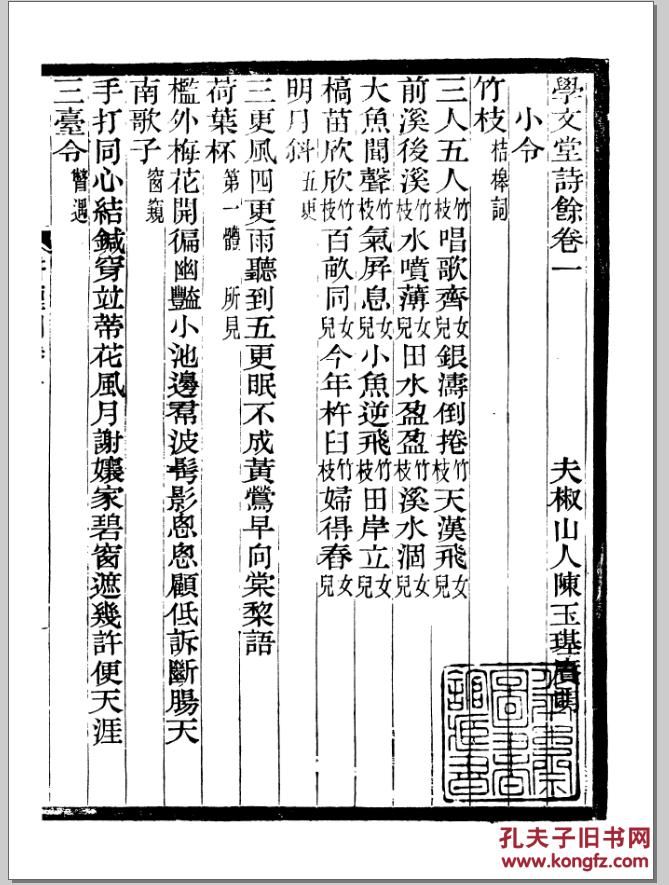 學文堂詩餘卷一
夫椒山人陳玉璂賡明
小令
竹枝 桔橰詞
三人五人竹枝唱歌齊女兒銀濤倒捲竹枝天漢飛女兒
前溪後溪竹枝水噴薄女兒田水盈盈竹枝溪水涸女兒
大魚聞聲竹枝氣屛息女兒小魚逆飛竹枝田岸立女兒
槁苗欣欣竹枝百畝同女兒今年杵臼竹枝婦得舂女兒
明月斜 五更
三更風四更雨聽到五更眠不成黃鶯早向棠黎語
荷葉杯 第一體 所見
檻外梅花開徧幽豔小池邊羣波髩影悤悤顧低訴斷腸天
南歌子 窗窺
手打同心結鍼穿竝蒂花風月謝孃家碧窗遮幾許便天涯
三臺令 瞥遇
孔夫子旧书网
www.kongfz.com